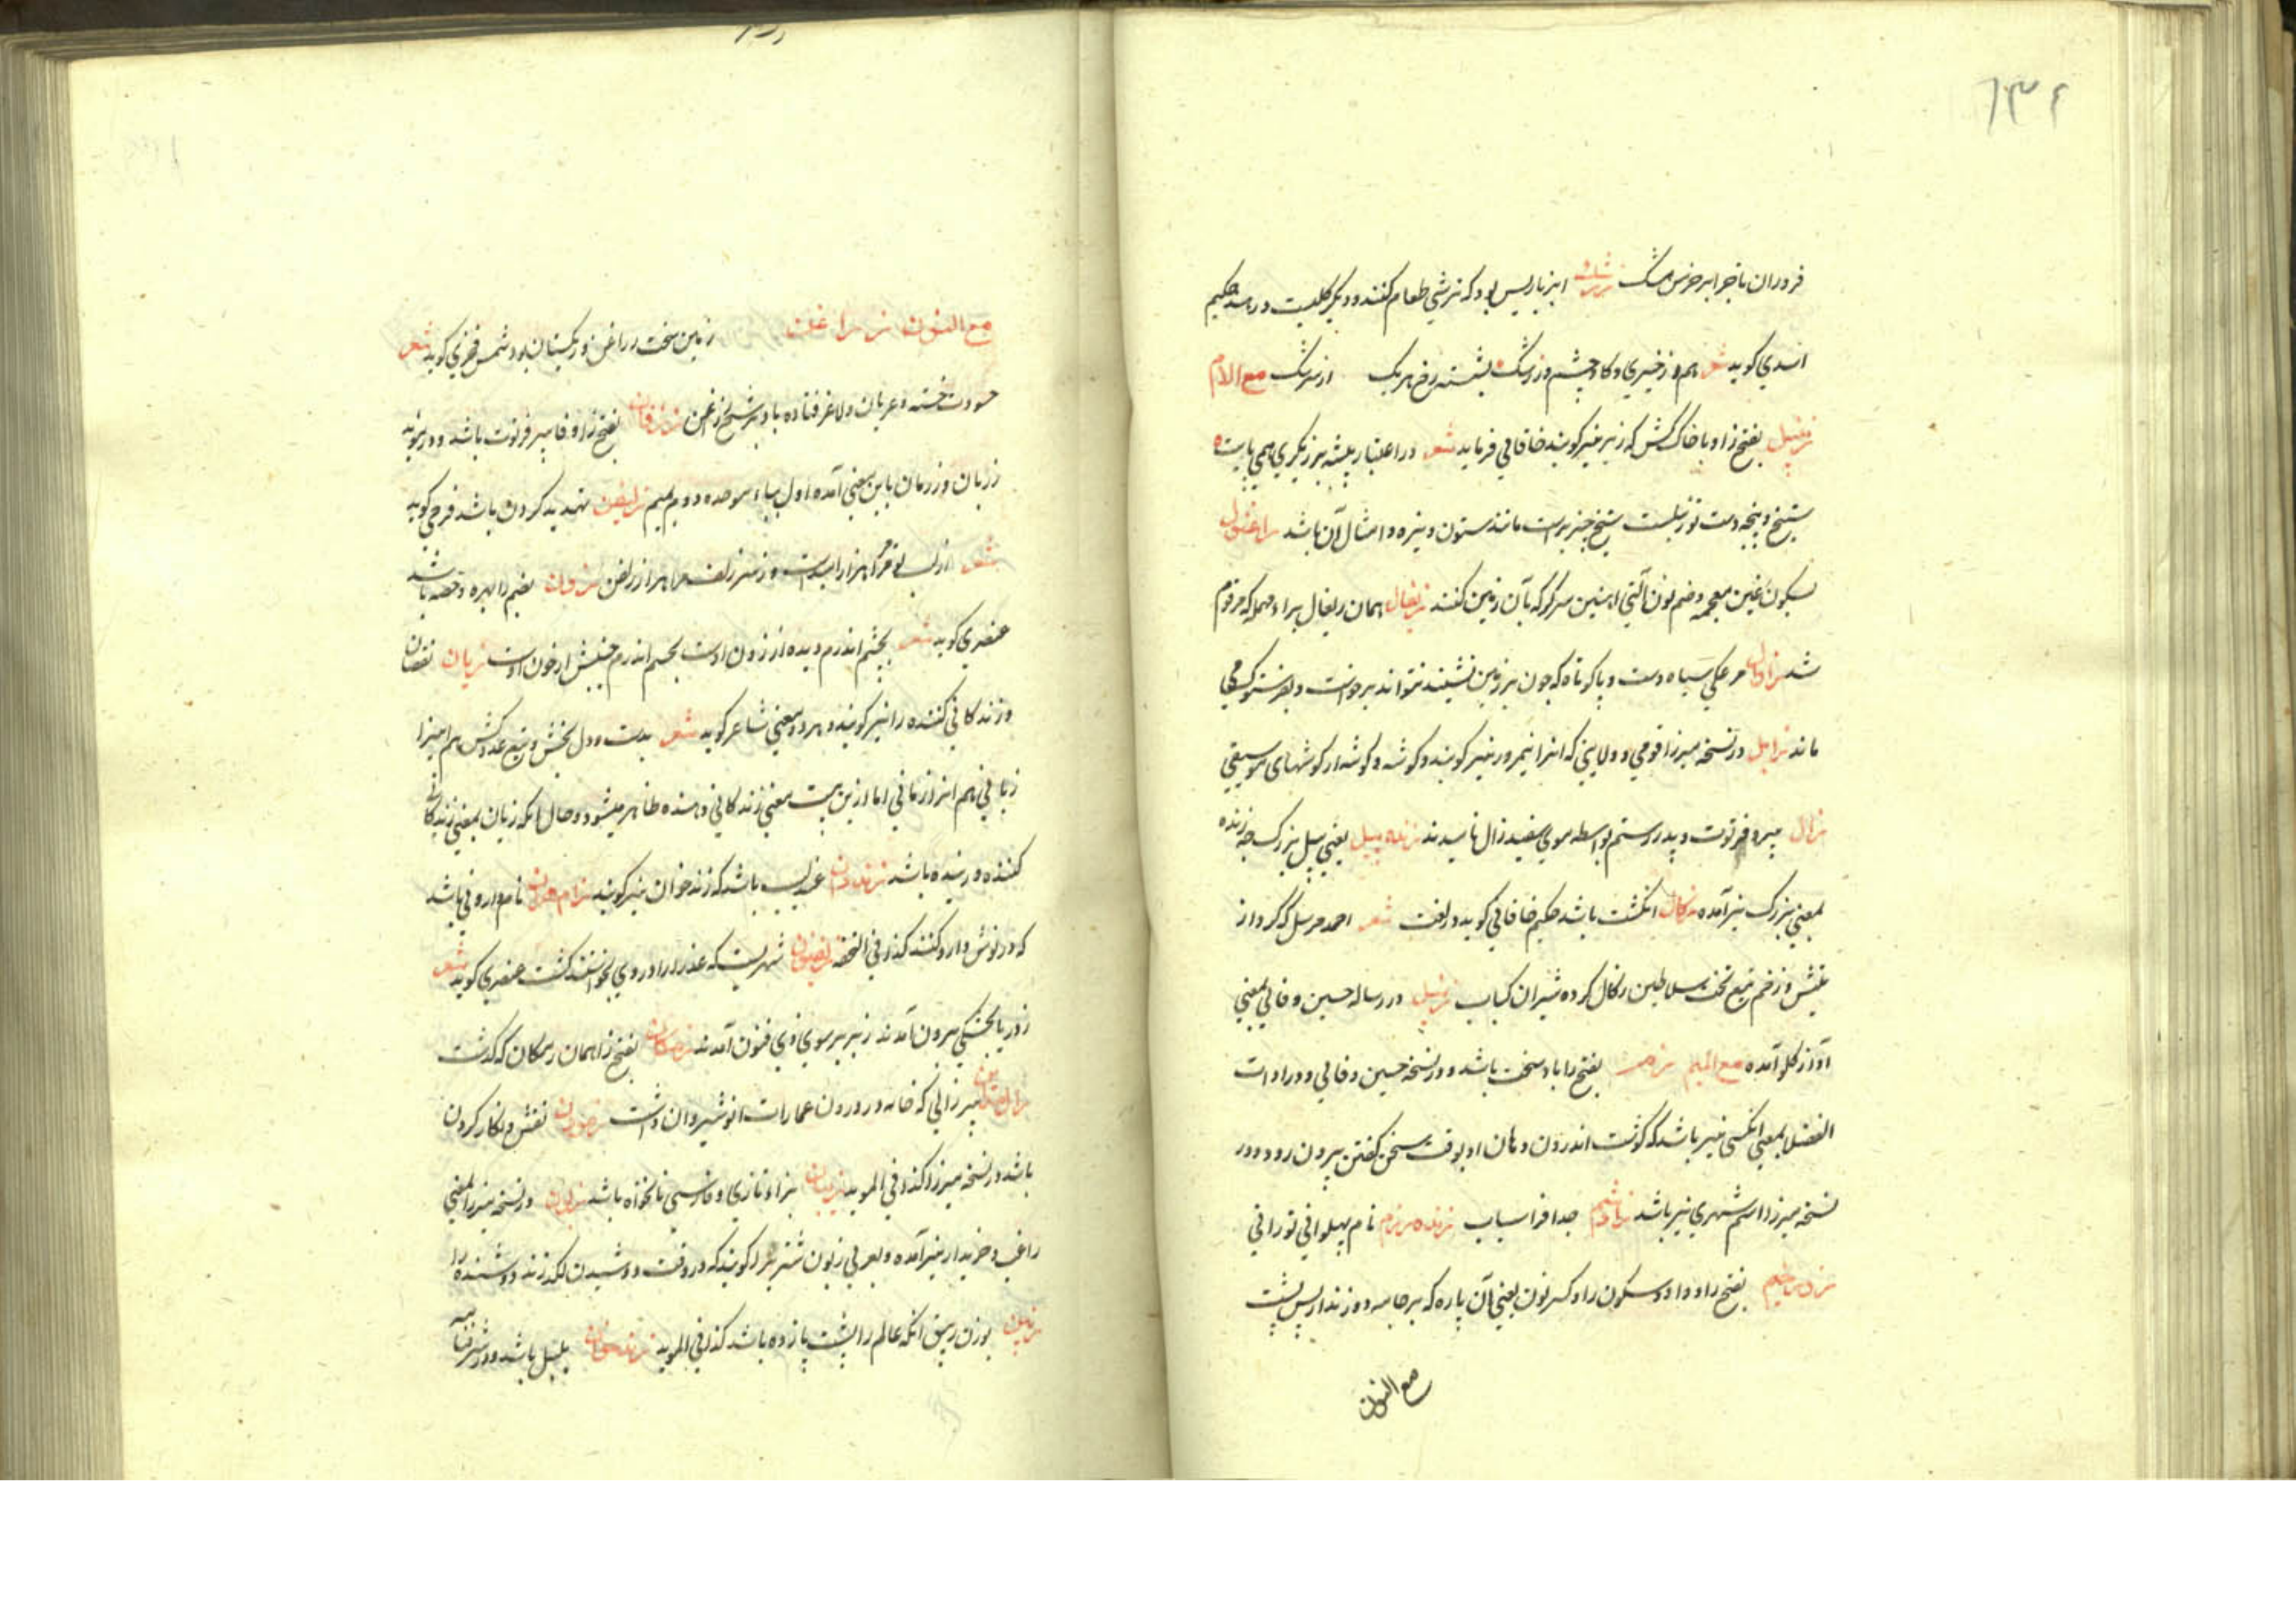 ۱۳۶
فروزان باخر ابر خرس مشک زرشک انبر باریس بود که ترشی طعام کنند و دیگر گلیست در
اسدی کوید شعر هم از خیری و کاوچشم و زرشک بشسته رخ هر یک از سرشک مع الام
زنبیل بفتح زا و با خاک کش که زنبر نیز کویند خاقانی فرماید شعر در اعتبار پیشه برزیگری همی بایست
ستیخ و پنجه دست تو زنبلست ستیخ چیز راست مانند ستون و نیزه و امثال آن باشد زاغنول
بسکون غین معجمه و ضم نون آلتی آهنین سرکژ که بآن زمین کنند زیغال همان ریغال براء مهمله که مرقوم
شد زاول مرغکی سیاه دست و پا کوتاه که چون بر زمین نشیند نتواند برخواست و بفرستوک
ماند زابل در نسخه میرزا قومی و ولایتی که انرا نیمروز نیز کویند و کوشه و کوشه از کوشهای موسیقی
زال پیر و فرتوت و پدر رستم بواسطه موی سفید زال نامیدند زنده پیل یعنی پیل بزرک چه زنده
بمعنی بزرک نیز آمده زکال انکشت باشد حکیم خاقانی کوید در لغت شعر احمد مرسل که کرد از
تپش و زخم تیغ تخت سلاطین زکال کرده شیران کباب در رساله حسین وفائی بمعنی
آواز کلو آمده مع المیم زم بفتح زا باد سخت باشد و در نسخه حسین وفائی و در ادات
الفضلا بمعنی انکسی نیز باشد که کوشت اندرون دهان او بوقت سخن گفتن بیرون رود و در
نسخه میرزا اسم شهری نیز باشد زادشم جد افراسیاب زنده رزم نام پهلوانی تورانی
بفتح زا و واو و سکون را و کسر نون یعنی آن پاره که بر جامه دوزند از پس پشت
مع النون
مع النون زراغن زمین سخت زراغن و ریکستان بود شمس فخری کوید شعر
حسودت خسته و عریان و لاغر فتاده باد بر شخ زراغن زرفان بفتح زا و فا پیر فرتوت باشد و در
زربان و زرمان باین معنی آمده اول بباء موحده دوم بمیم زلیفن تهدید کردن باشد فرخی کوید
شعر از لب تو مر مرا هزار امیدست وز سر زلفت مرا هزار زلیفن زون بضم زا بهره و حصه باشد
عنصری کوید شعر بچشم اندرم دیده از زون اوست بجسم اندرم جنبش از خون اوست زیان نقصان
و زندکانی کننده را نیز کویند و بهر دو معنی شاعر کوید شعر بدست و دل بخش و تیغ عدو کش هم امیرا
زیانی هم انرا زمانی اما ازین بیت معنی زندکانی دهنده ظاهر میشود و حال انکه زیان بمعنی زندکانی
کننده و زنده باشد زندوان عندلیب باشد که زندخوان نیز کویند زامهران نام داروئی باشد
که در نوش دارو کنند کذا فی التحفه شهریست که عذرا را در وی بخواستند کشت عنصری کوید شعر
ز دریا بخشکی برون آمدند ز بربر سوی ذیفنون آمدند بفتح زا همان رمکان که گذشت
پیر زالی که خانه در درون عمارات انوشیروان داشت نقش و نکار کردن
باشد در نسخه میرزا کذا فی الموید زنیان بزاء تازی و فارسی نانخواه باشد زبون در نسخه میرزا بمعنی
راغب و خریدار نیز آمده و بعربی زبون شتر را کویند که در وقت دوشیدن لکد زند دوشنده را
بوزن انکه عالم را پشت پا زده باشد کذا فی الموید زندخوان بلبل باشد و در شرفنامه